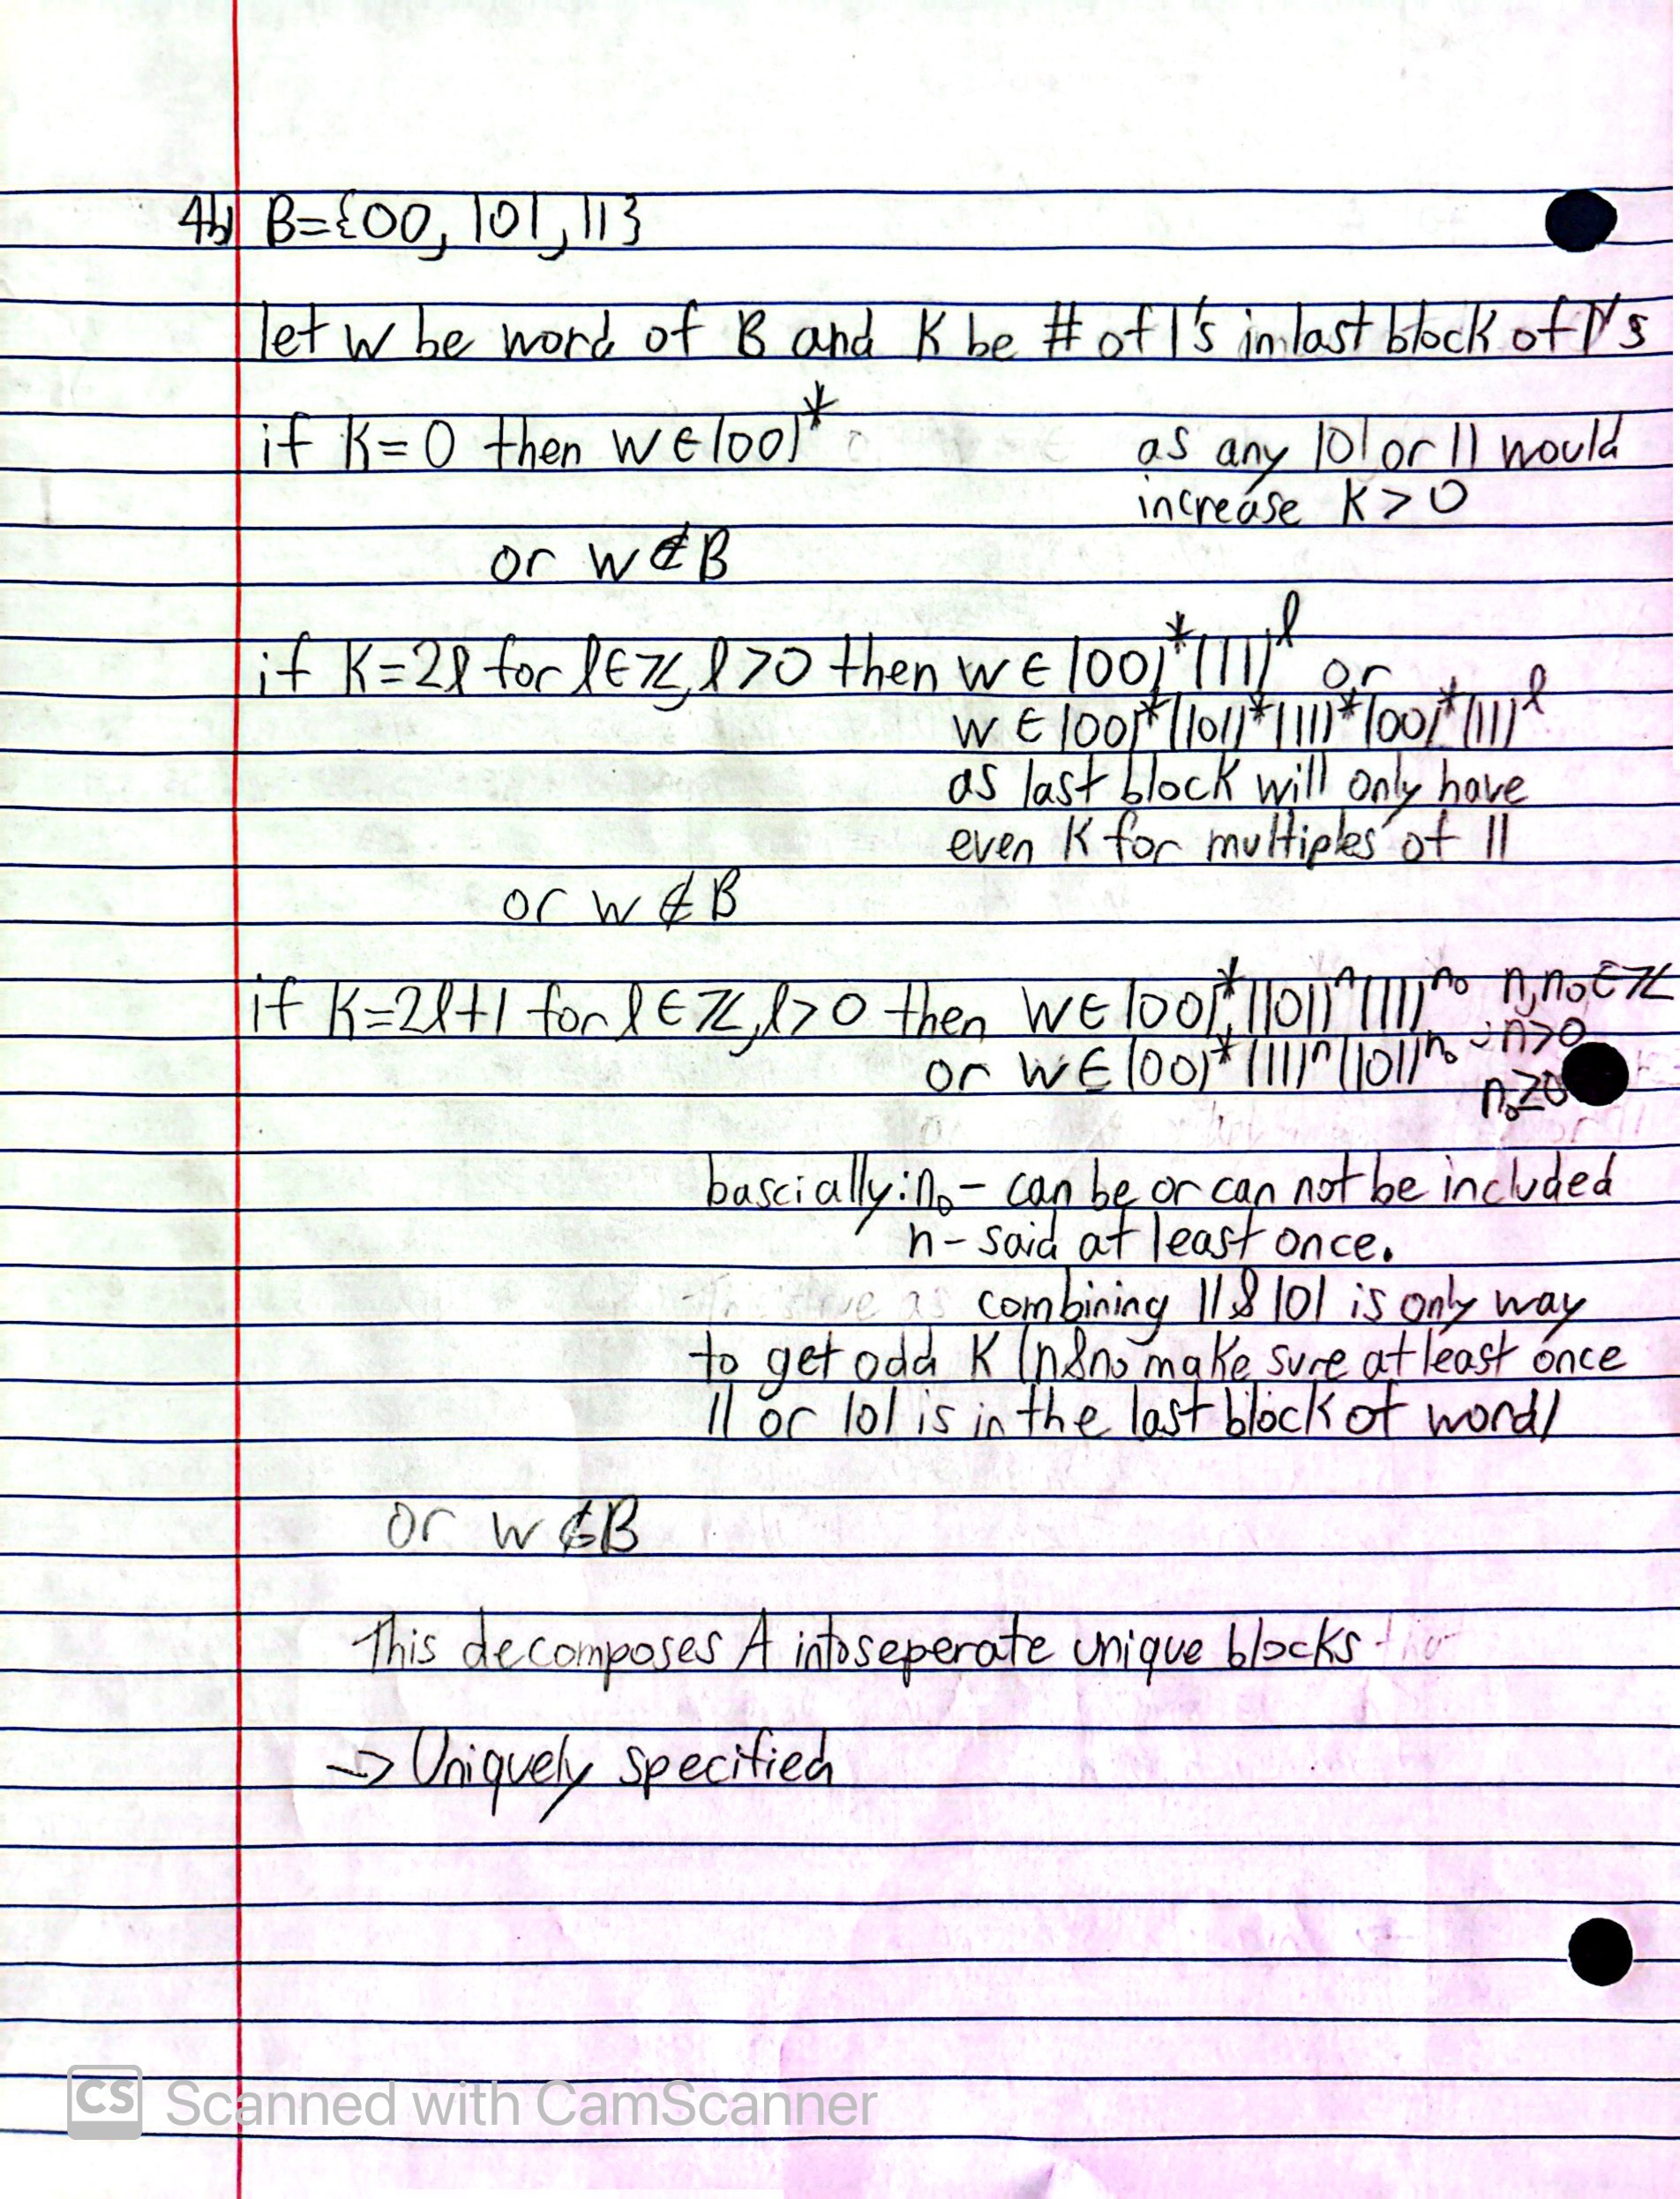 4b) B={00, 101, 11}
let w be word of B and K be # of 1's in last block of 1's
if K=0 then w∈(00)* as any 101 or 11 would
increase K>0
or w∉B
if K=2ℓ for ℓ∈ℤ, ℓ>0 then w∈(00)*(11)^ℓ or
w∈(00)*(101)*(11)*(00)*(11)^ℓ
as last block will only have
even K for multiples of 11
or w∉B
if K=2ℓ+1 for ℓ∈ℤ, ℓ>0 then w∈(00)*(101)^n(11)^n₀ n,n₀∈ℤ
n>0
or w∈(00)*(11)^n(101)^n₀
n₀≥0
bascially: n₀ - can be or can not be included
n - said at least once.
combining 11 & 101 is only way
to get odd K (n&n₀ make sure at least once
11 or 101 is in the last block of word)
or w∉B
This decomposes A into seperate unique blocks
-> Uniquely specified
CS Scanned with CamScanner